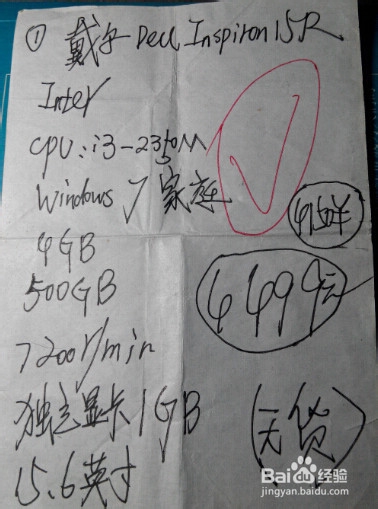 ① 戴尔 Dell Inspiron 15R
Inter
CPU: i3-2350M
Windows 7 家庭
4GB
500GB
4499元
7200r/min
独立显卡1GB
(无货)
15.6英寸
Baidu经验
jingyan.baidu.com